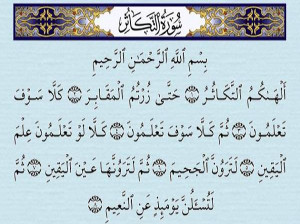 سُورَةُ التَّكَاثُرِ
بِسْمِ ٱللَّهِ ٱلرَّحْمَٰنِ ٱلرَّحِيمِ
أَلْهَىٰكُمُ ٱلتَّكَاثُرُ ١ حَتَّىٰ زُرْتُمُ ٱلْمَقَابِرَ ٢ كَلَّا سَوْفَ
تَعْلَمُونَ ٣ ثُمَّ كَلَّا سَوْفَ تَعْلَمُونَ ٤ كَلَّا لَوْ تَعْلَمُونَ عِلْمَ
ٱلْيَقِينِ ٥ لَتَرَوُنَّ ٱلْجَحِيمَ ٦ ثُمَّ لَتَرَوُنَّهَا عَيْنَ ٱلْيَقِينِ ٧ ثُمَّ
لَتُسْـَٔلُنَّ يَوْمَئِذٍ عَنِ ٱلنَّعِيمِ ٨